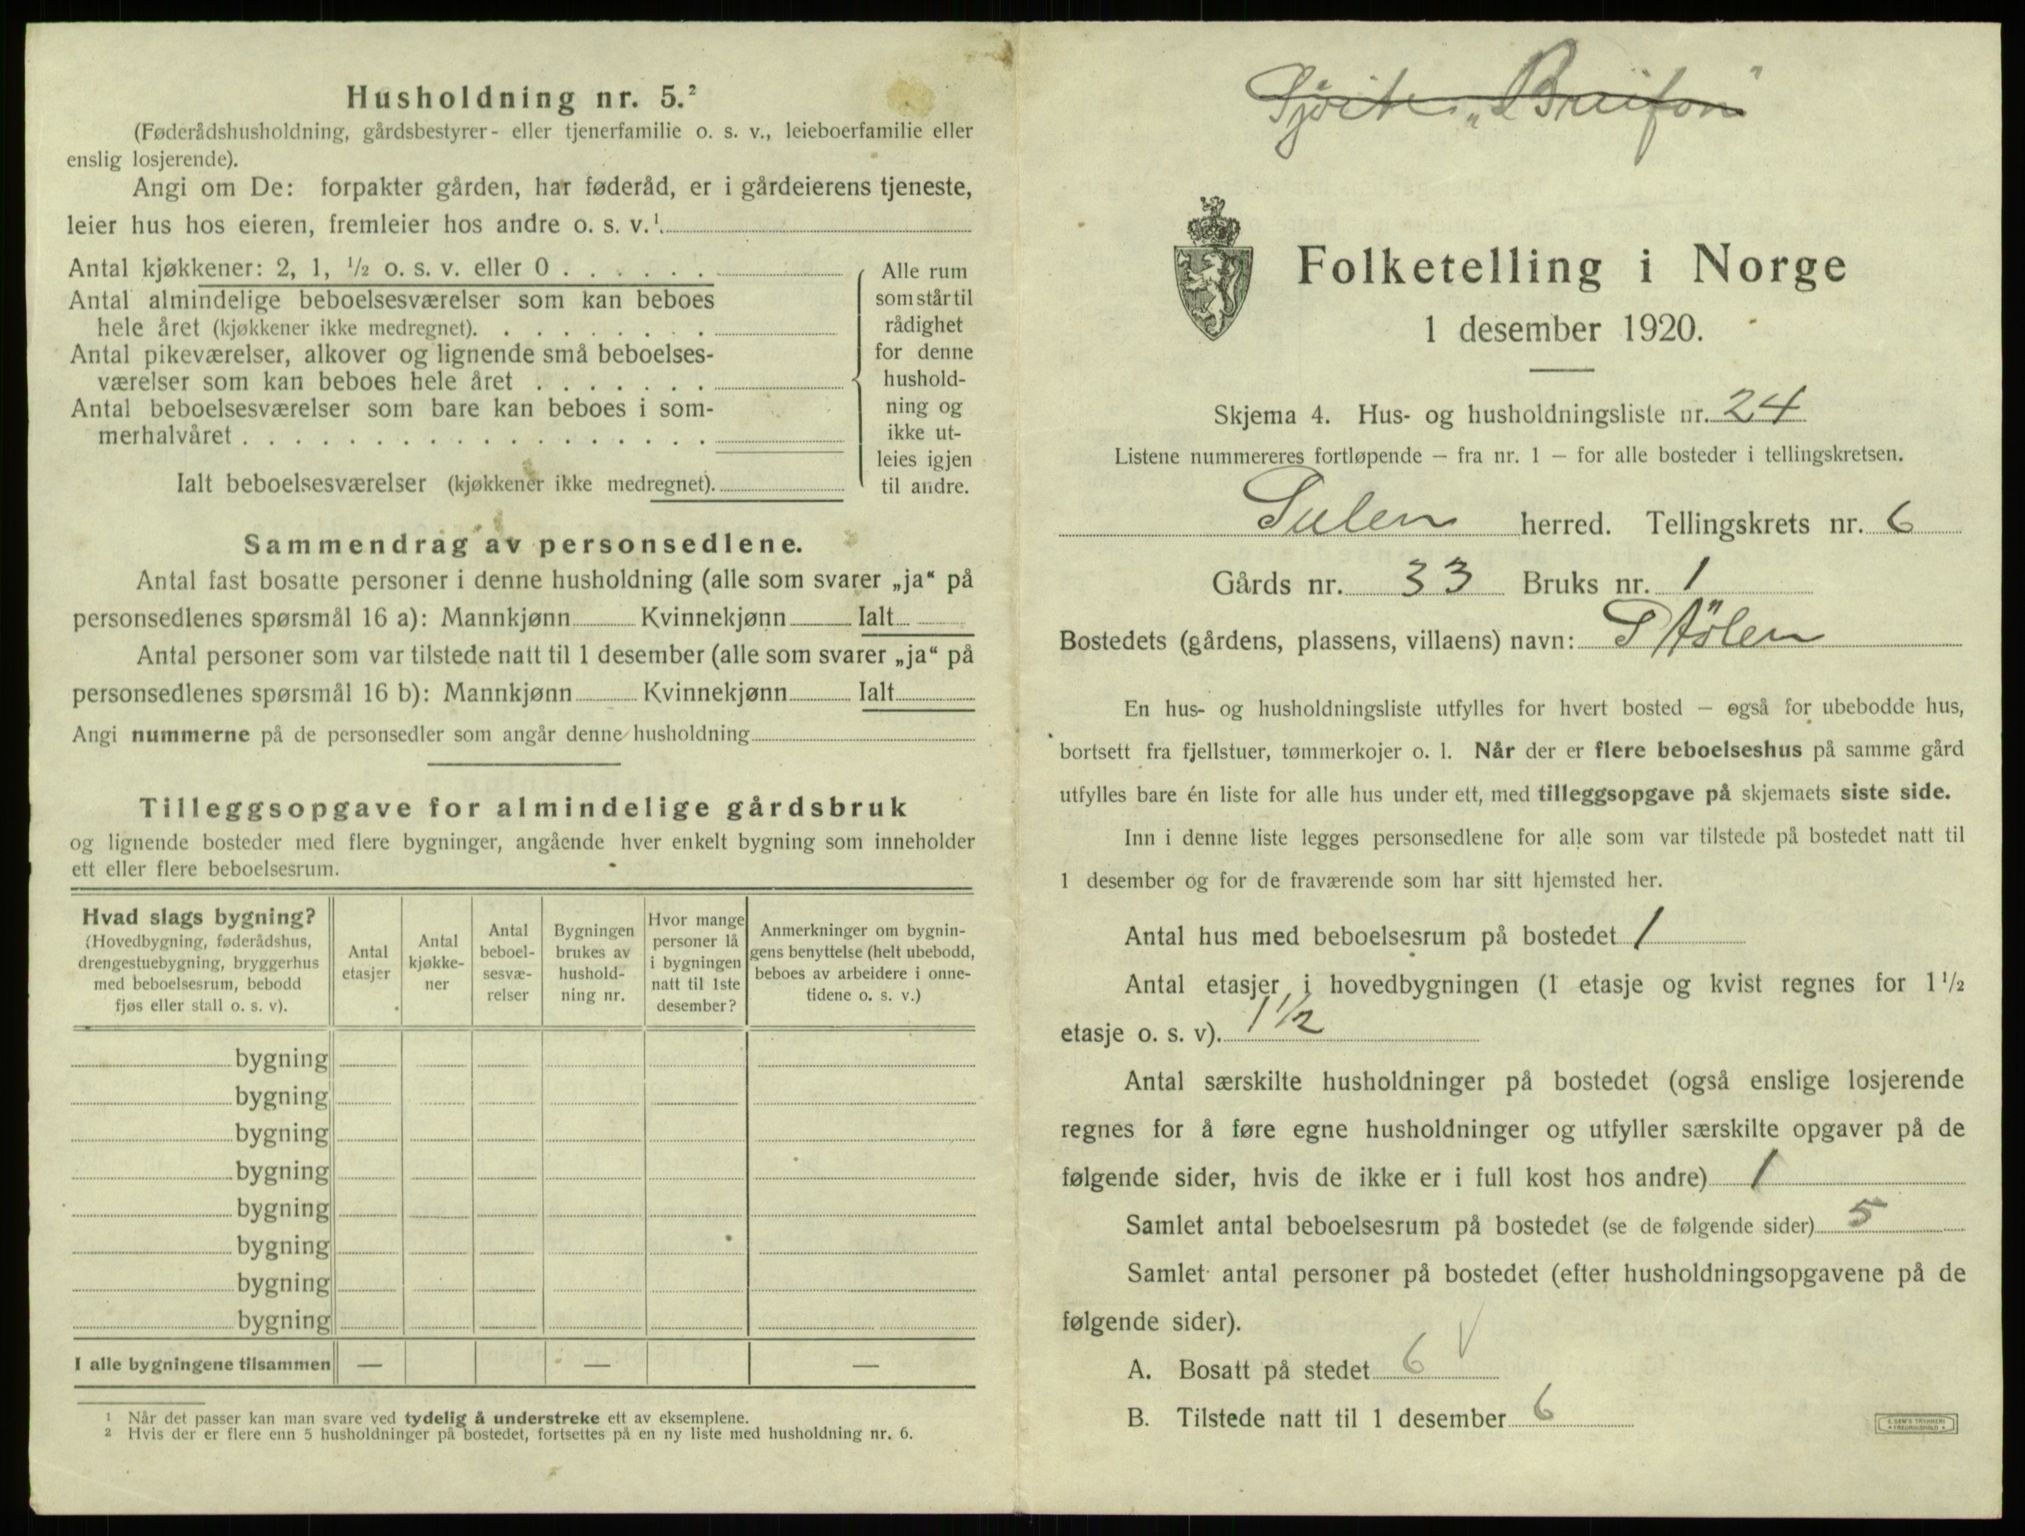 Husholdning nr. 5.²
(Føderådshusholdning, gårdsbestyrer- eller tjenerfamilie o. s. v., leieboerfamilie eller
enslig losjerende).
Angi om De: forpakter gården, har føderåd, er i gårdeierens tjeneste,
leier hus hos eieren, fremleier hos andre o. s. v.¹
Antal kjøkkener: 2, 1, ½ o. s. v. eller 0
Antal almindelige beboelsesværelser som kan beboes
hele året (kjøkkener ikke medregnet).
Antal pikeværelser, alkover og lignende små beboelses-
værelser som kan beboes hele året
Antal beboelsesværelser som bare kan beboes i som-
merhalvåret
Ialt beboelsesværelser (kjøkkener ikke medregnet).
Alle rum
som står til
rådighet
for denne
hushold-
ning og
ikke ut-
leies igjen
til andre.
Sammendrag av personsedlene.
Antal fast bosatte personer i denne husholdning (alle som svarer „ja“ på
personsedlenes spørsmål 16 a): Mannkjønn Kvinnekjønn Ialt
Antal personer som var tilstede natt til 1 desember (alle som svarer „ja“ på
personsedlenes spørsmål 16 b): Mannkjønn Kvinnekjønn Ialt
Angi nummerne på de personsedler som angår denne husholdning
Tilleggsopgave for almindelige gårdsbruk
og lignende bosteder med flere bygninger, angående hver enkelt bygning som inneholder
ett eller flere beboelsesrum.
Hvad slags bygning?
(Hovedbygning, føderådshus,
drengestuebygning, bryggerhus
med beboelsesrum, bebodd
fjøs eller stall o. s. v).
Antal
etasjer
Antal
kjøkke-
ner
Antal
beboel-
sesvæ-
relser
Bygningen
brukes av
hushold-
ning nr.
Hvor mange
personer lå
i bygningen
natt til 1ste
desember?
Anmerkninger om bygnin-
gens benyttelse (helt ubebodd,
beboes av arbeidere i onne-
tidene o. s. v.)
bygning
bygning
bygning
bygning
bygning
bygning
bygning
bygning
I alle bygningene tilsammen — — —
¹ Når det passer kan man svare ved tydelig å understreke ett av eksemplene.
² Hvis der er flere enn 5 husholdninger på bostedet, fortsettes på en ny liste med husholdning nr. 6.
Folketelling i Norge
1 desember 1920.
Skjema 4. Hus- og husholdningsliste nr. 24
Listene nummereres fortløpende – fra nr. 1 – for alle bosteder i tellingskretsen.
Sulen herred. Tellingskrets nr. 6
Gårds nr. 33 Bruks nr. 1
Bostedets (gårdens, plassens, villaens) navn: Stølen
En hus- og husholdningsliste utfylles for hvert bosted – også for ubebodde hus,
bortsett fra fjellstuer, tømmerkojer o. l. Når der er flere beboelseshus på samme gård
utfylles bare én liste for alle hus under ett, med tilleggsopgave på skjemaets siste side.
Inn i denne liste legges personsedlene for alle som var tilstede på bostedet natt til
1 desember og for de fraværende som har sitt hjemsted her.
Antal hus med beboelsesrum på bostedet 1
Antal etasjer i hovedbygningen (1 etasje og kvist regnes for 1½
etasje o. s. v). 1½
Antal særskilte husholdninger på bostedet (også enslige losjerende
regnes for å føre egne husholdninger og utfyller særskilte opgaver på de
følgende sider, hvis de ikke er i full kost hos andre) 1
Samlet antal beboelsesrum på bostedet (se de følgende sider) 5
Samlet antal personer på bostedet (efter husholdningsopgavene på de
følgende sider).
A. Bosatt på stedet 6 V
B. Tilstede natt til 1 desember 6